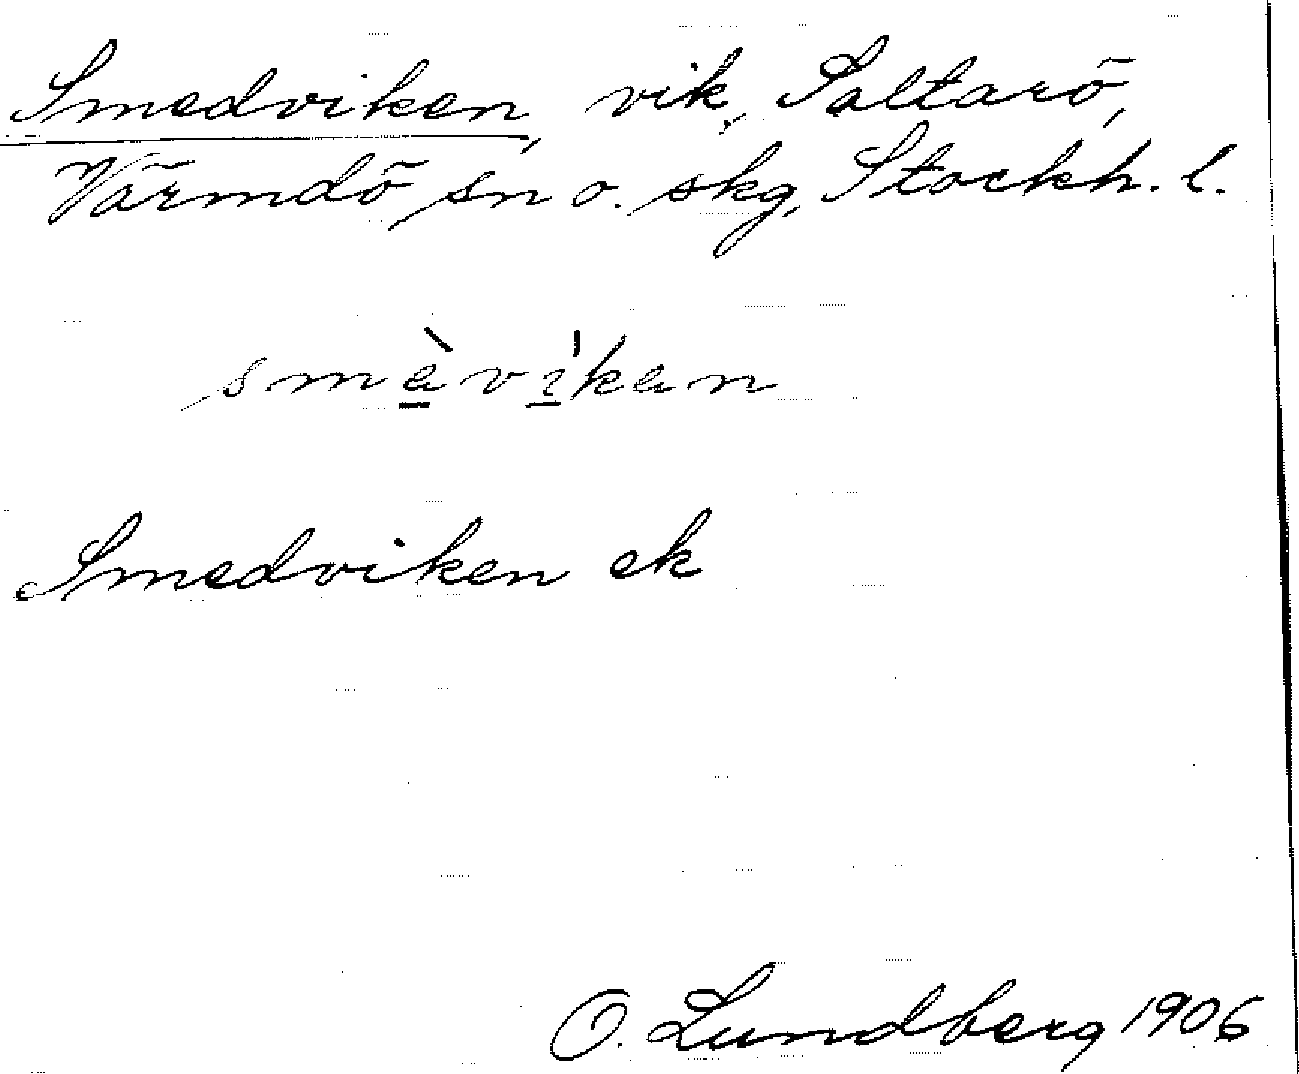 Smedviken, vik, Saltarö,
Värmdö sn o. skg, Stockh. l.
smèvíkan
Smedviken ek
O. Lundberg 1906